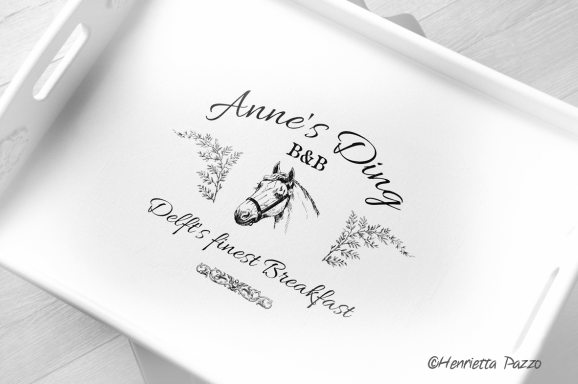 Anne's Ding
B&B
Delft's finest Breakfast
©Henrietta Pazzo